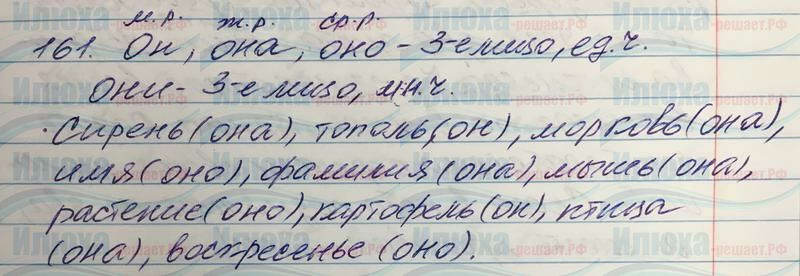 м.р. ж.р. ср.р.
161. Он, она, оно - 3-е лицо, ед.ч.
они - 3-е лицо, мн.ч.
Сирень (она), тополь (он), морковь (она),
имя (оно), фамилия (она), мышь (она),
растение (оно), картофель (он), птица
(она), воскресенье (оно).